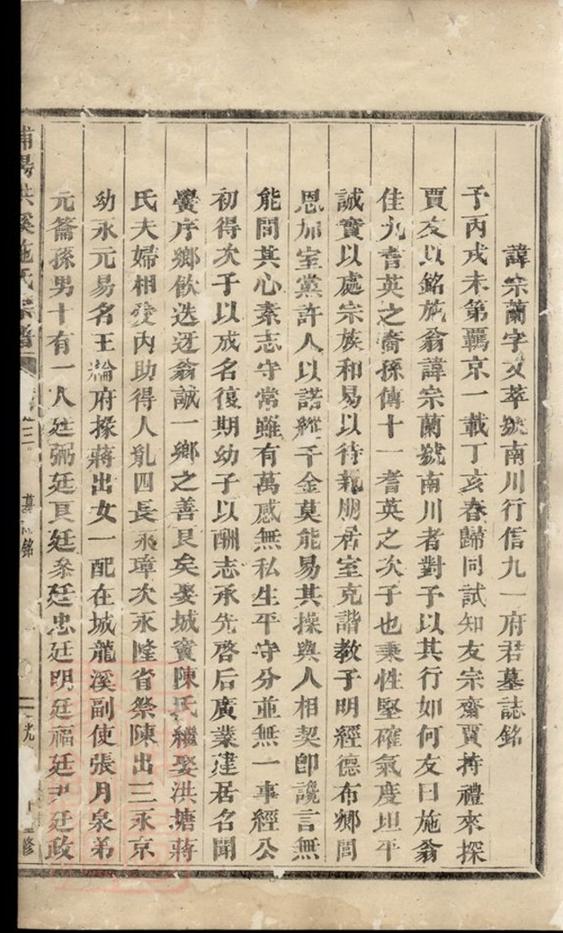 諱宗蘭字文萃號南川行信九一府君墓誌銘
予丙戌未第羈京一載丁亥春歸同試知友宗齋賈持禮來探
賈友以銘施翁諱宗蘭號南川者對予以其行如何友曰施翁
佳九耆英之裔孫傳十一耆英之次子也秉性堅確氣度坦平
誠實以處宗族和易以待親朋居室克諧教子明經德布鄉閭
恩加室黨許人以諾雖千金莫能易其操與人相契卽讒言無
能間其心素志守常雖有萬感無私生平守分並無一事經公
初得次子以成名復期幼子以酬志承先啓后廣業建居名聞
黌序鄉飲迭迓翁誠一鄉之善良矣娶城竇陳氏繼娶洪塘蔣
氏夫婦相愛內助得人胤四長永璋次永隆省祭陳出三永京
幼永元易名王瀹府掾蔣出女一配在城龍溪副使張月泉弟
元籥孫男十有一人廷弼廷 廷 廷忠廷明廷福廷尹廷政
浦陽洪溪施氏宗譜 卷三 墓誌銘 重修